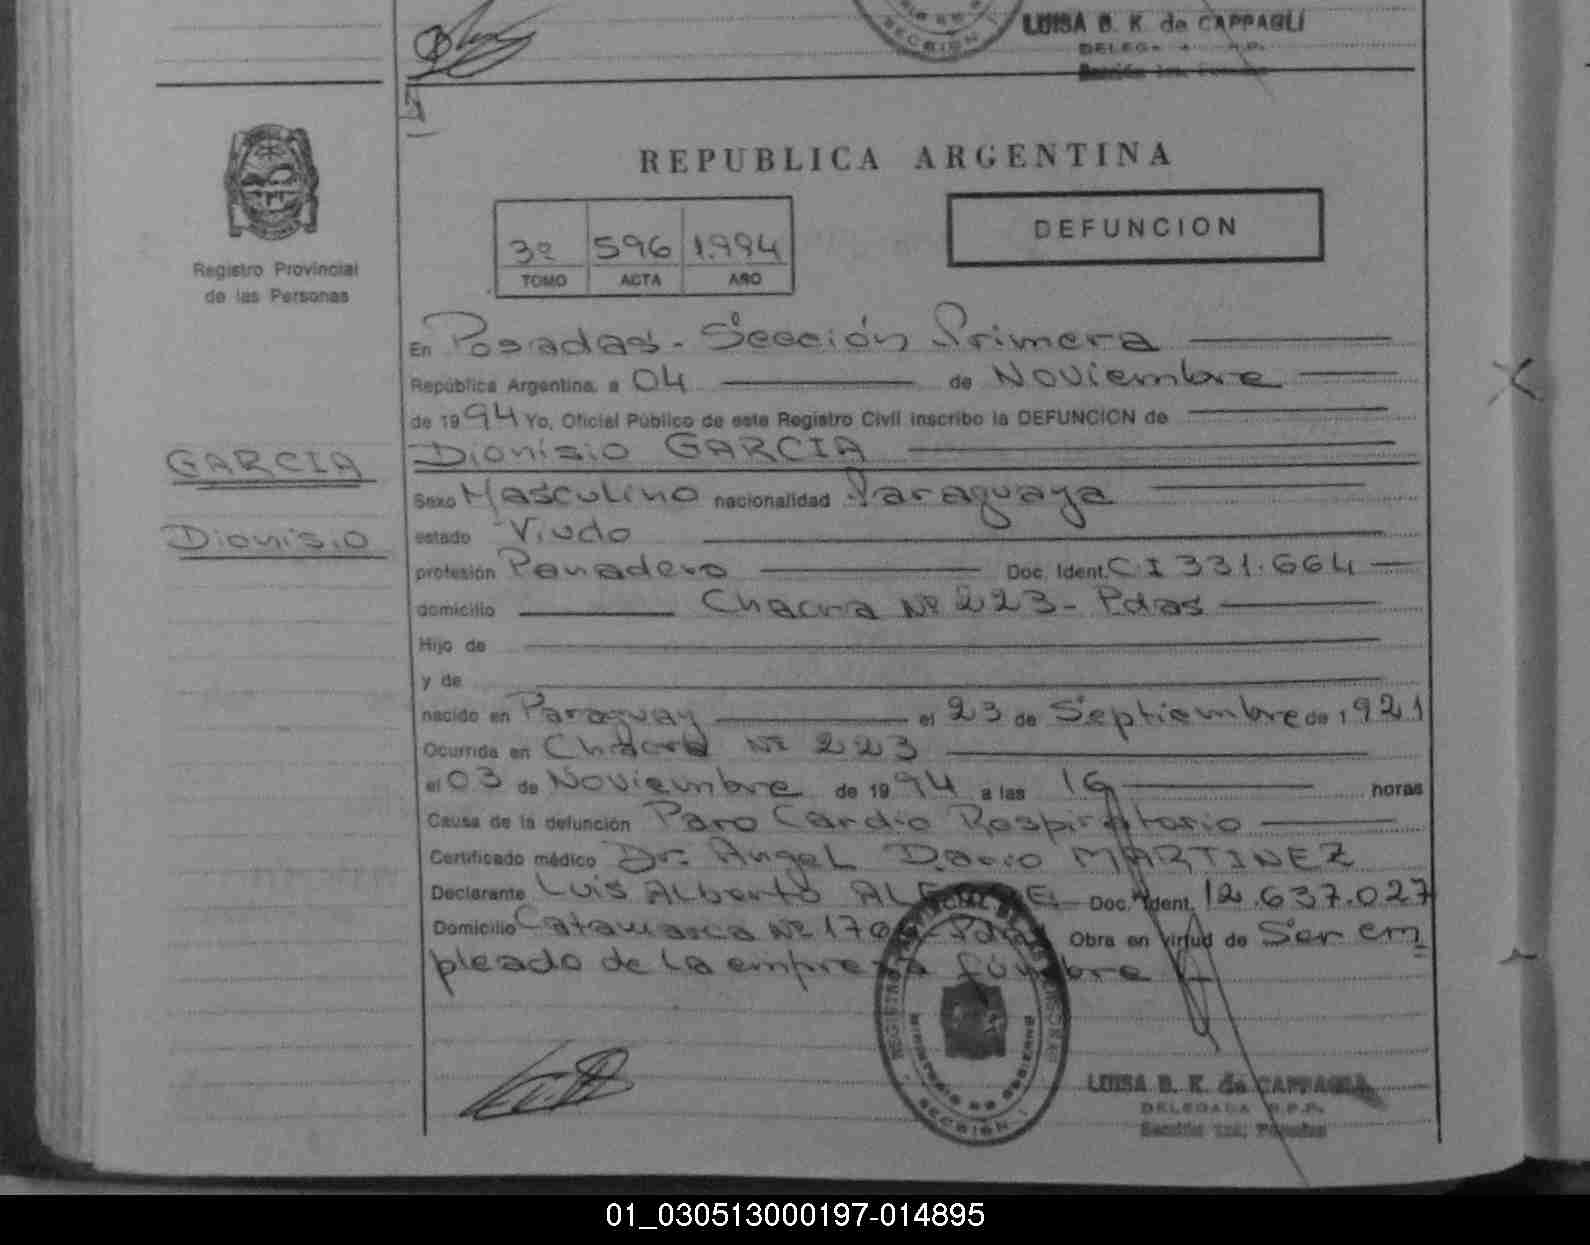 LUISA B. K. de CAPPAGLI
SECCION I
REPUBLICA ARGENTINA
DEFUNCION
3º 596 1.994
TOMO ACTA AÑO
Registro Provincial
de las Personas
En Posadas - Sección Primera
República Argentina, a 04 de Noviembre
de 1994 Yo, Oficial Público de este Registro Civil inscribo la DEFUNCION de
GARCIA
Dionisio GARCIA
Sexo Masculino nacionalidad Paraguaya
Dionisio
estado Viudo
profesión Panadero Doc. Ident. C I 331.664
domicilio Chacra Nº 223 - Pdas
Hijo de
y de
nacido en Paraguay el 23 de Septiembre de 1921
Ocurrida en Chacra Nº 223
el 03 de Noviembre de 1994 a las 16 horas
Causa de la defunción Paro Cardio Respiratorio
Certificado médico Dr. Angel Dario MARTINEZ
Declarante Luis Alberto Doc. Ident. 12.637.027
Domicilio Catamarca Nº Pdas Obra en virtud de Ser em
pleado de la empresa fúnebre
REGISTRO PROVINCIAL DE LAS PERSONAS
MINISTERIO DE GOBIERNO
SECCION I
LUISA B. K. de CAPPAGLI
DELEGADA R.P.P.
Sección 1ra. Posadas
01_030513000197-014895